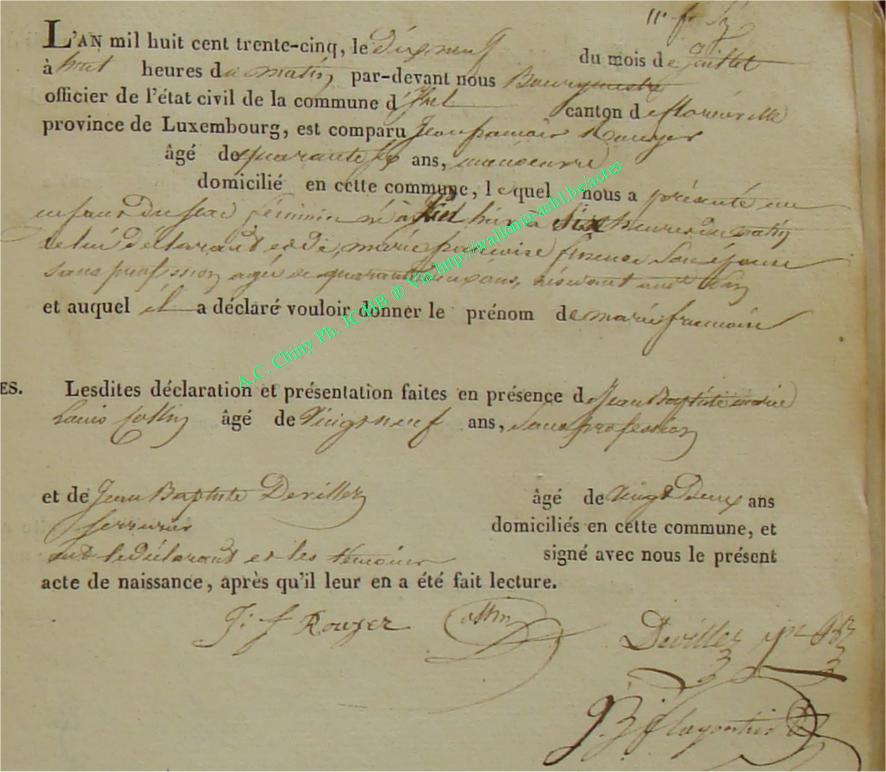 11. f.
L'AN mil huit cent trente-cinq, le dix neuf du mois de juillet
à huit heures du matin par-devant nous Bourgmestre
officier de l'état civil de la commune d'Izel canton de florenville
province de Luxembourg, est comparu Jean françois Rouyer
âgé de quarante six ans, manoeuvre
domicilié en cette commune, lequel nous a présenté un
enfant du sexe féminin né à Izel hier à six heures du matin
de lui déclarant et de marie françoise son épouse
sans profession agée de quarante deux ans,
et auquel il a déclaré vouloir donner le prénom de marie françoise
ES. Lesdites déclaration et présentation faites en présence de Jean Baptiste marie
Louis Collin âgé de Vingt neuf ans, sans profession
et de Jean Baptiste Devillez âgé de Vingt Deux ans
serrurier domiciliés en cette commune, et
ont le déclarant et les témoins signé avec nous le présent
acte de naissance, après qu'il leur en a été fait lecture.
J: f Rouyer Collin Devillez
A.C. Chiny Ph. JCMB ® Via http://wallonia-asbl.be/actes